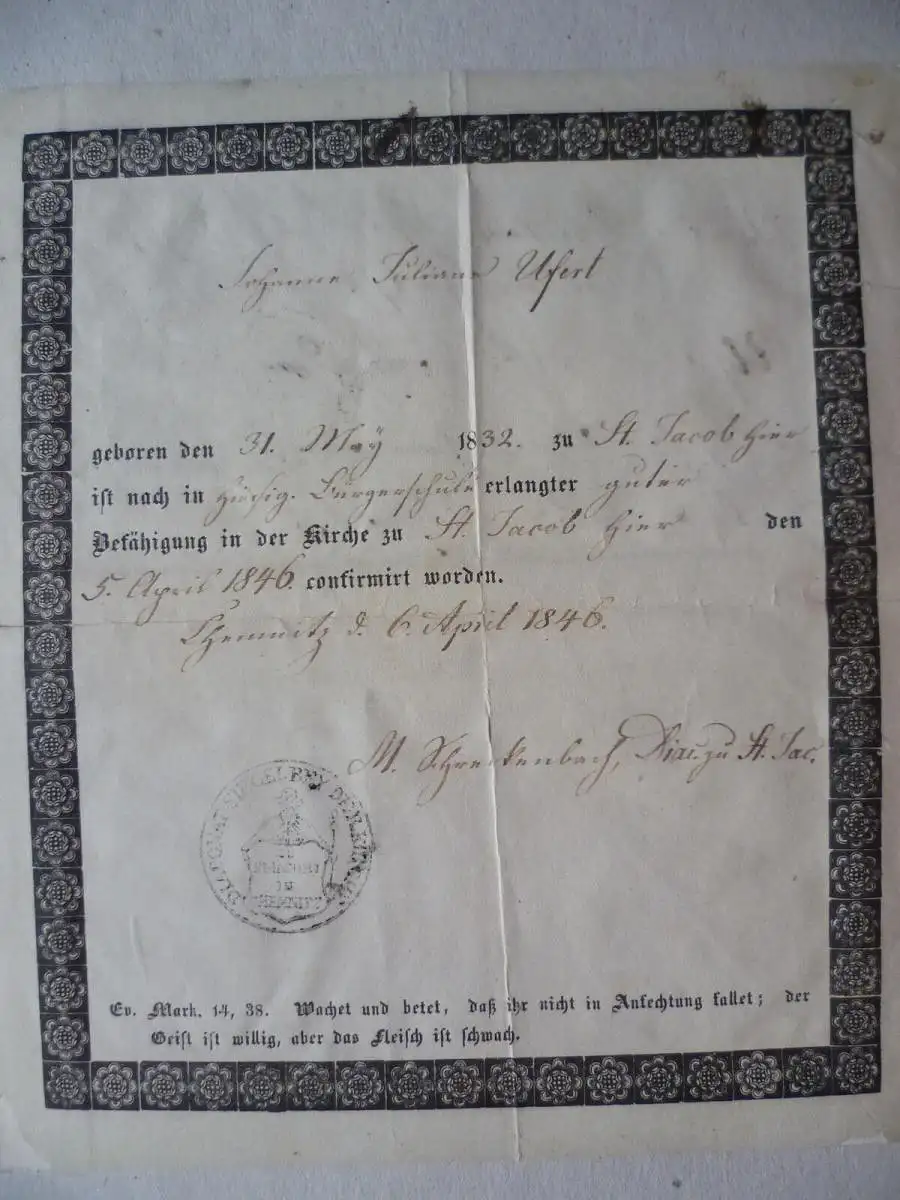 Johanne Juliane Ufert
geboren den 31. May 1832. zu St. Jacob hier
ist nach in hiesig. Bürgerschule erlangter guter
Befähigung in der Kirche zu St. Jacob hier den
5. April 1846. confirmirt worden.
Chemnitz d. 6. April 1846.
M. Schreckenbach, Diac. zu St. Jac.
ZU
ST. JACOBI
IN
CHEMNITZ
Ev. Mark. 14, 38. Wachet und betet, daß ihr nicht in Anfechtung fallet; der
Geist ist willig, aber das Fleisch ist schwach.